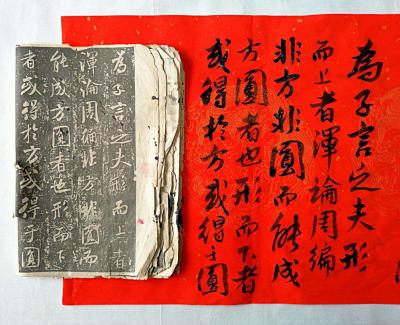 為子言之夫形而上者
渾論周徧非方非圓而
能成方圓者也形而下
者或得於方或得于圓
為子言之夫形
而上者渾論周徧
非方非圓而能成
方圓者也形而下者
或得於方或得于圓